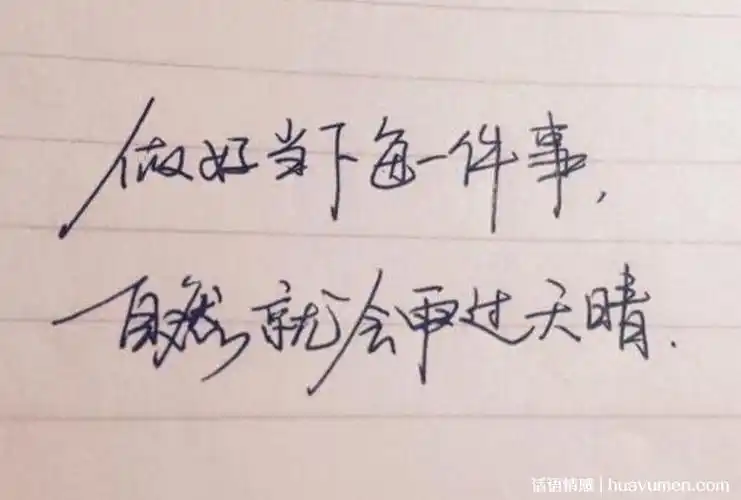 做好当下每一件事，
自然就会雨过天晴.
话语情感 | huayumen.com